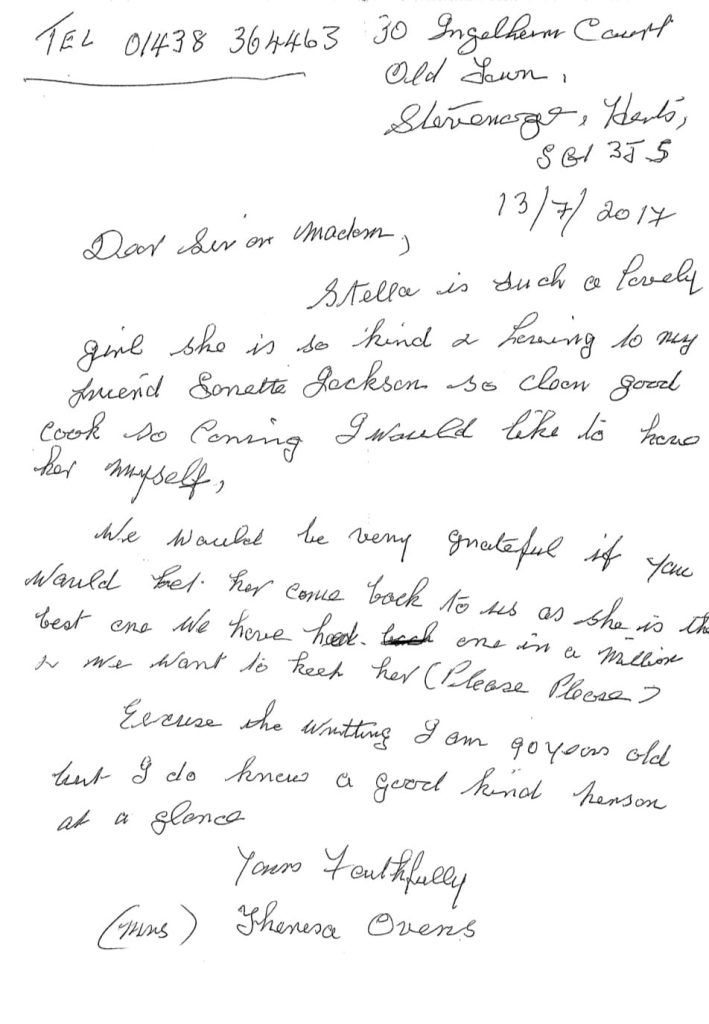 TEL 01438 364463 30 Ingelheim Court
Old Town,
Stevenage, Herts,
SG1 3JS
13/7/2017
Dear Sir or Madam,
Stella is such a lovely
girl she is so kind & to my
friend Jackson so clean good
cook so Caring I would like to have
her myself,
We would be very grateful if you
would let her come back to us as she is the
best one we have had. one in a million
& we want to keep her (Please Please)
Excuse the writting I am 90 years old
but I do know a good kind person
at a glance
Yours Faithfully
(Mrs) Theresa Ovens